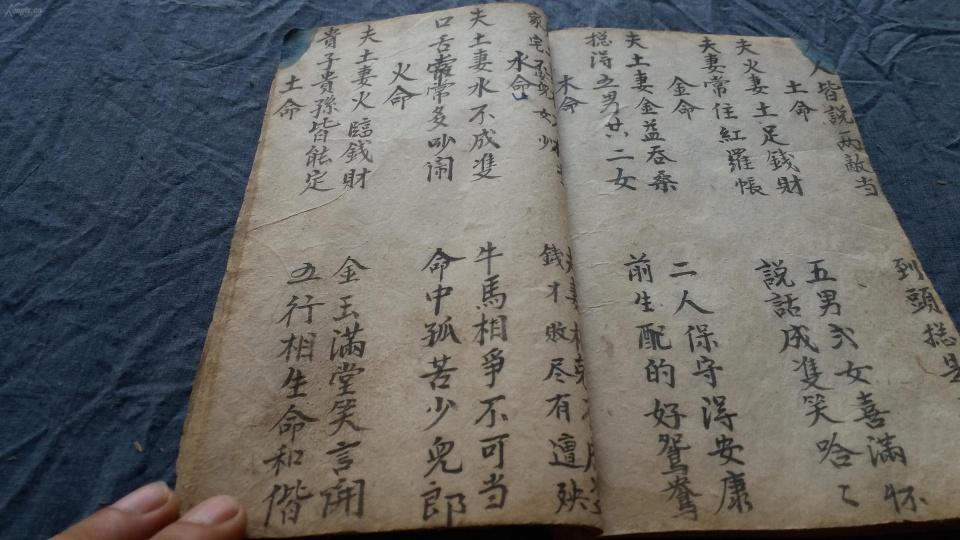 人皆説两敵当 到頭捴是
土命
夫火妻土足錢財 五男弍女喜滿怀
夫妻常住紅羅帳 説話成隻笑哈〻
金命
夫土妻金益吞桑 二人保守淂安康
捴淂五男廿二女 前生配的好鴛鴦
木命
家宅 女少 錢才敗尽有遭殃
水命
夫土妻水不成隻 牛馬相爭不可当
口舌常常多吵闹 命中孤苦少兒郎
火命
夫土妻火臨錢財 金玉滿堂笑言開
貴子貴孫皆能定 五行相生命和偕
土命